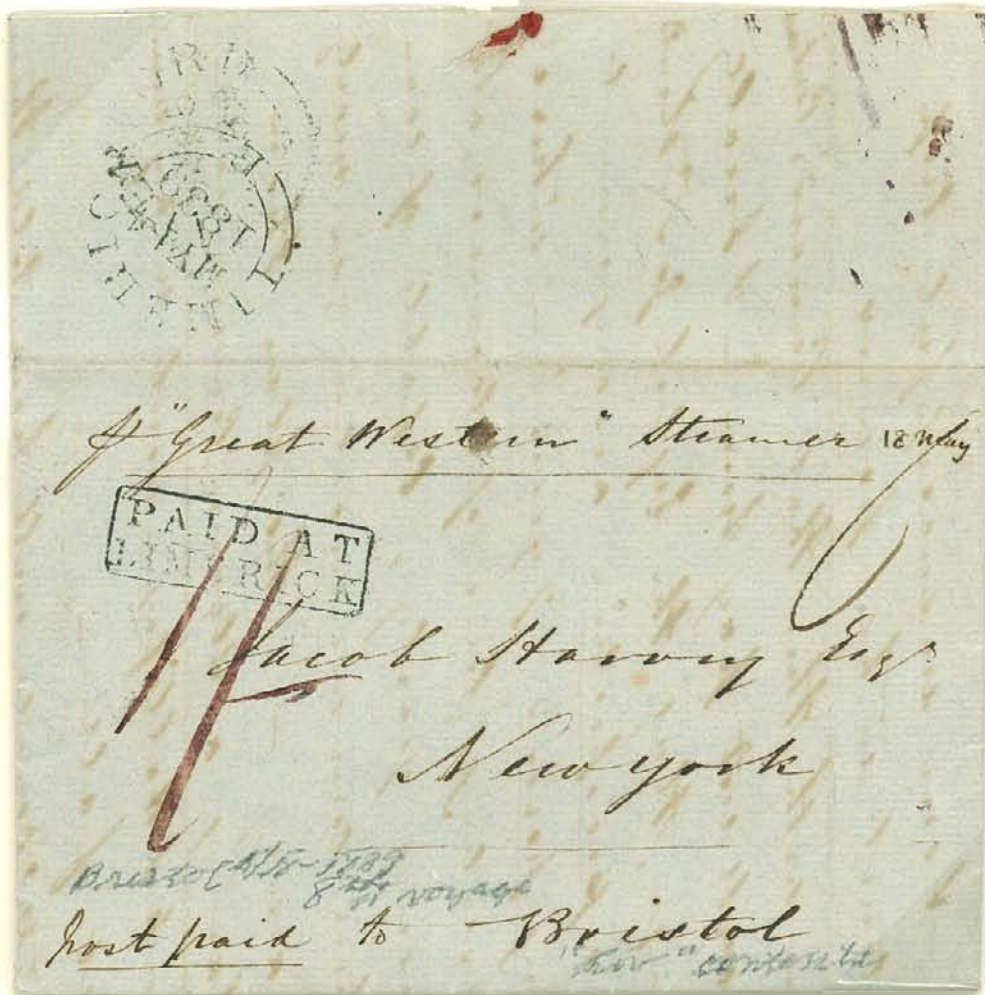 LIMERICK
MY 14
1839
"Great Western" Steamer 18 May
PAID AT
LIMERICK
1/
Jacob Harvey Esqr
New York
Bristol 1839
8th voyage
post paid to Bristol